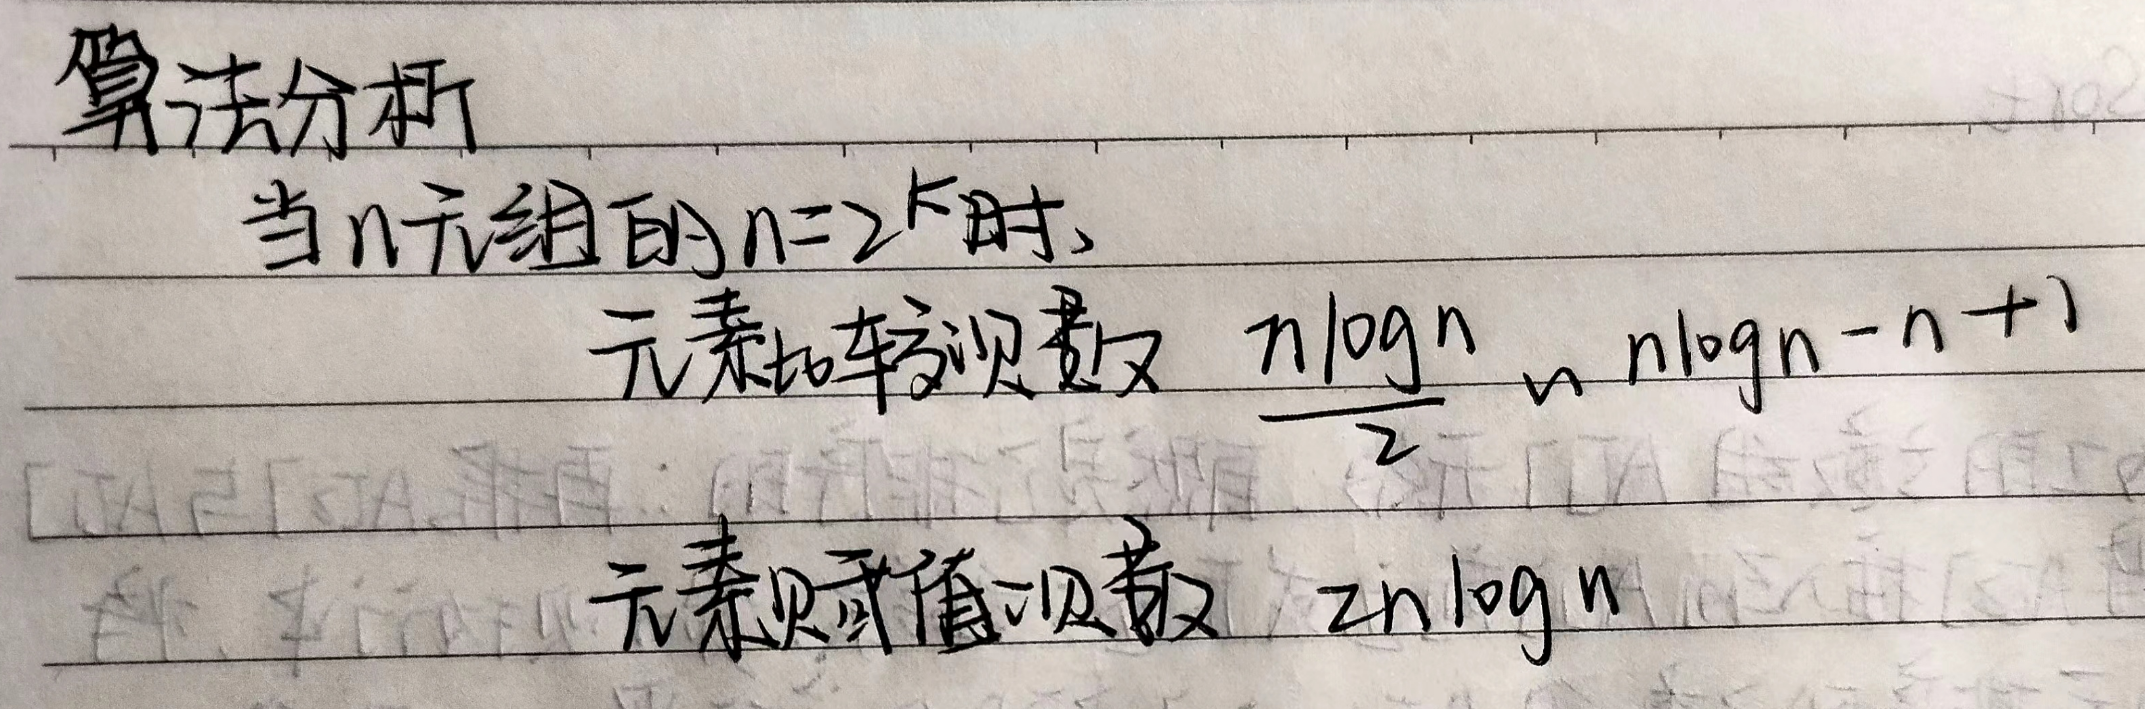 算法分析
当n元组的n=2^k时、
元素比较次数 \frac{n\log n}{2} ~ n\log n-n+1
元素赋值次数 2n\log n